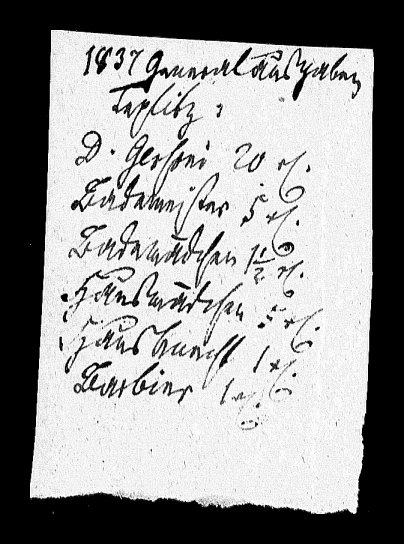 1837 Generalausgaben
Teplitz:
D. Gerhni 20 rℓ.
Bademeister 5 rℓ.
Bademädchen 1 1/2 rℓ.
Hausmädchen 5 rℓ.
Hausknecht 1 rℓ.
Barbier 1 rℓ.